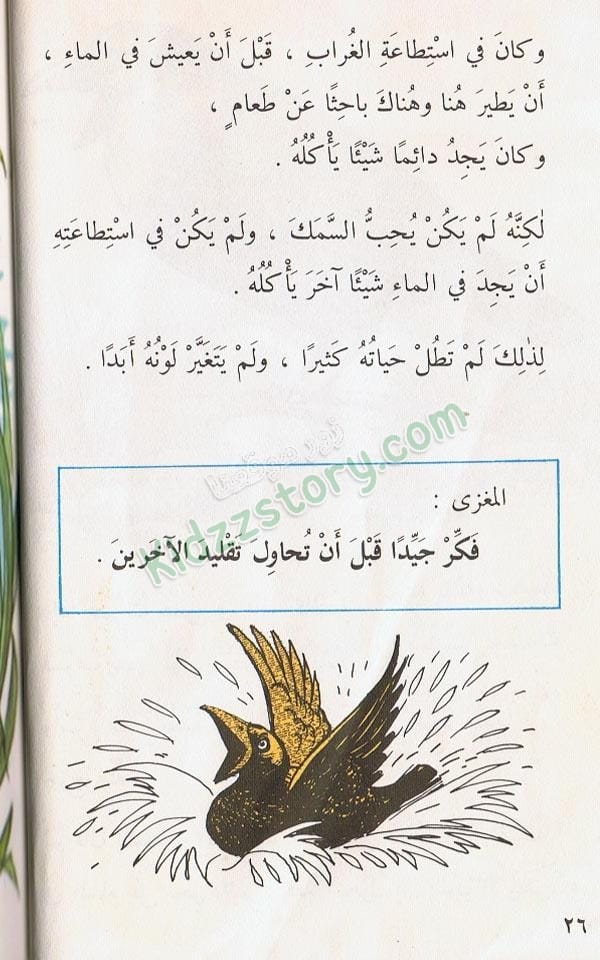 وكانَ في اسْتِطاعَةِ الغُرابِ ، قَبْلَ أَنْ يَعيشَ في الماءِ ،
أَنْ يَطيرَ هُنا وهُناكَ باحِثًا عَنْ طَعامٍ ،
وكانَ يَجِدُ دائِمًا شَيْئًا يَأْكُلُهُ .
لٰكِنَّهُ لَمْ يَكُنْ يُحِبُّ السَّمَكَ ، ولَمْ يَكُنْ في اسْتِطاعَتِهِ
أَنْ يَجِدَ في الماءِ شَيْئًا آخَرَ يَأْكُلُهُ .
لِذٰلِكَ لَمْ تَطُلْ حَياتُهُ كَثيرًا ، ولَمْ يَتَغَيَّرْ لَوْنُهُ أَبَدًا .
زورو موقعنا
Kidzzstory.com
المغزى :
فَكِّرْ جَيِّدًا قَبْلَ أَنْ تُحاوِلَ تَقْليدَ الآخَرينَ .
٢٦